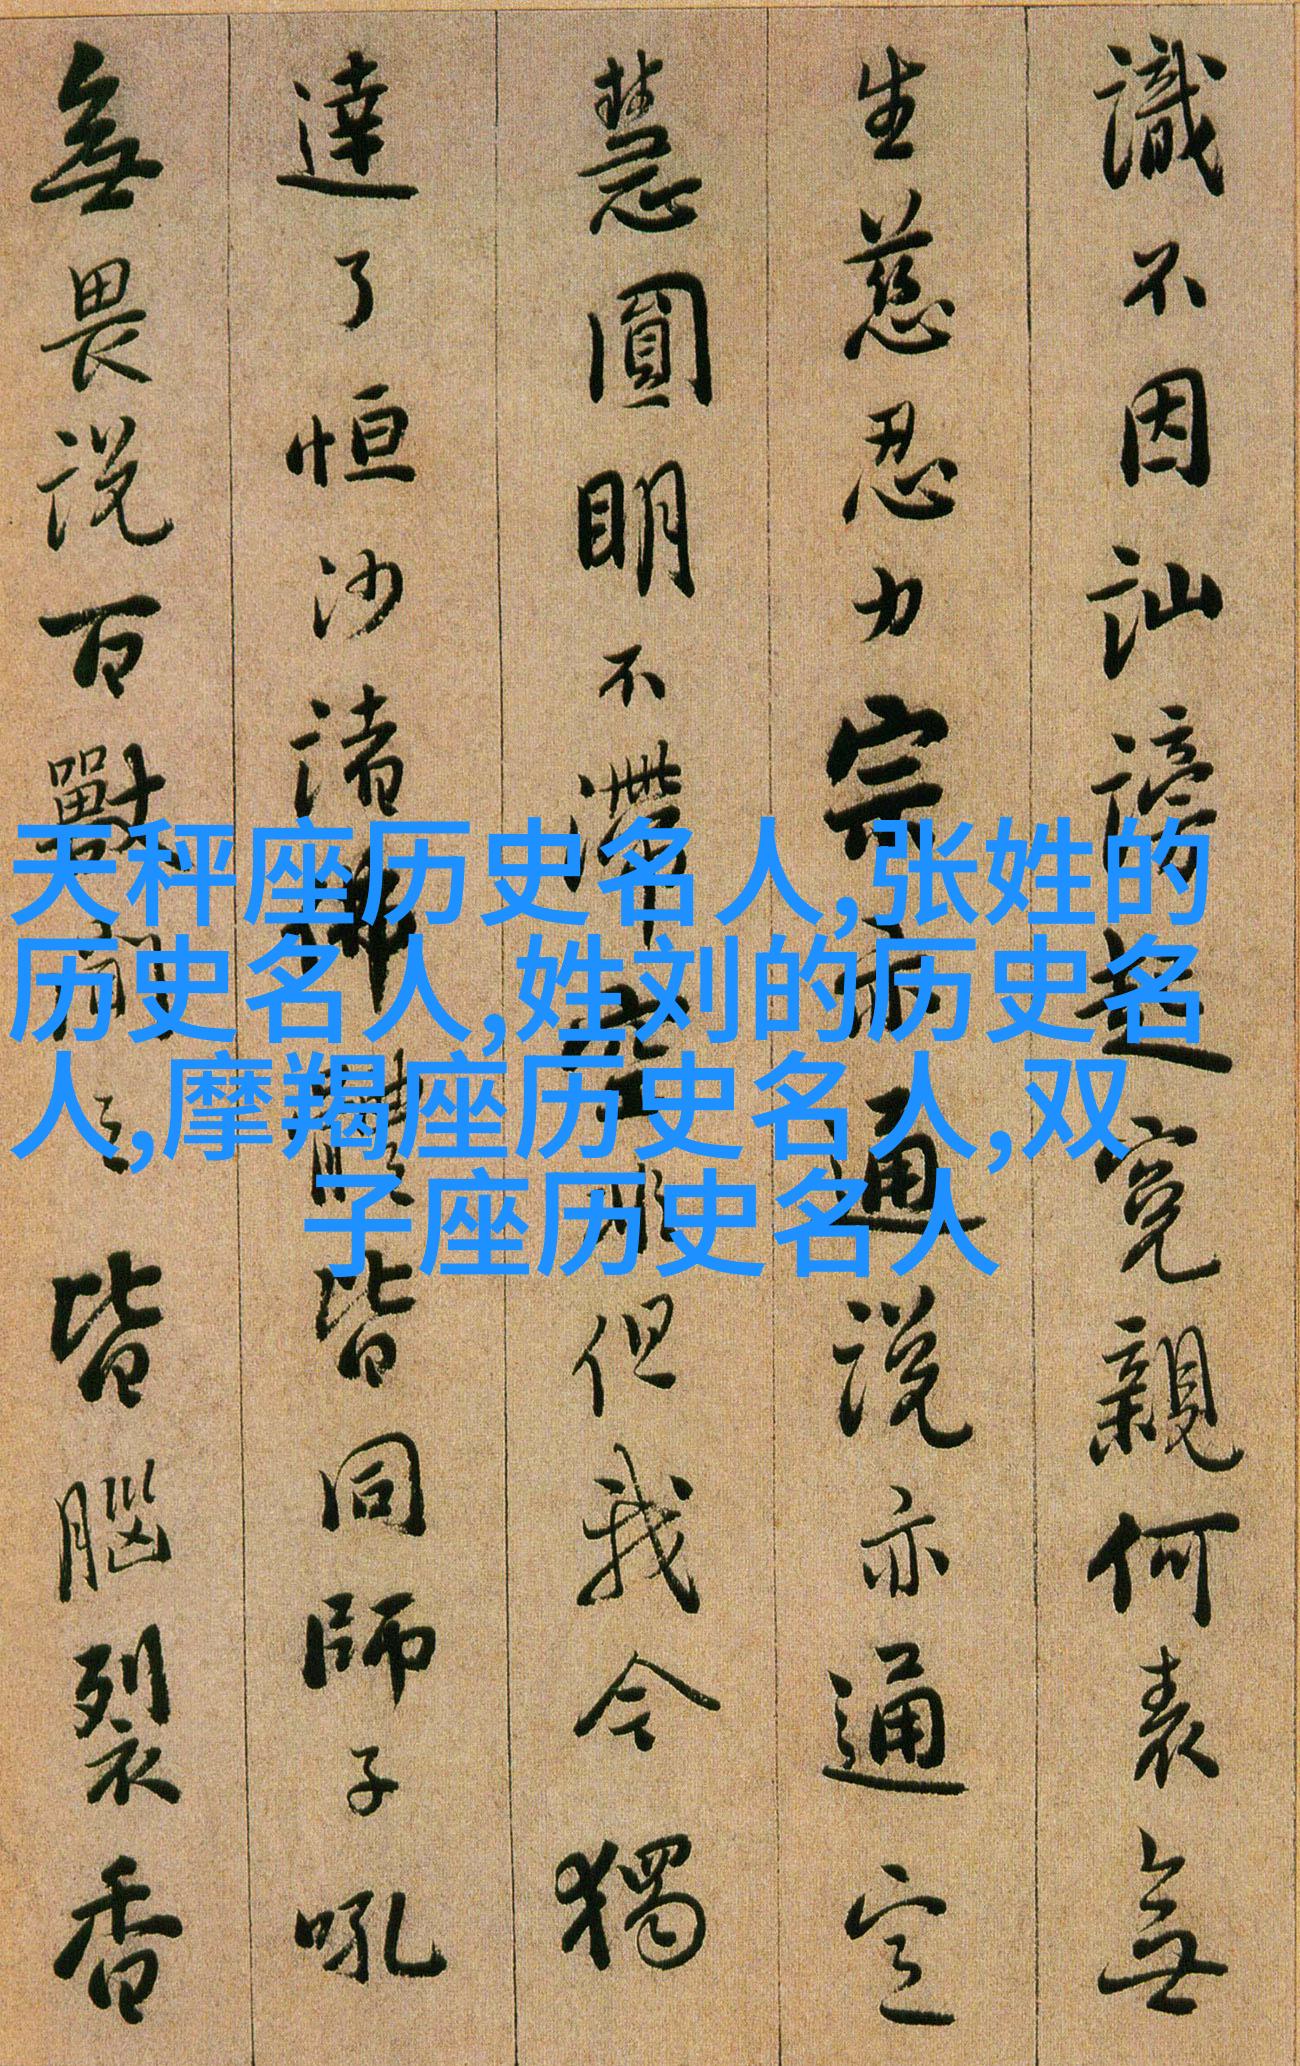 識不因訕謗起寃親何表無
生慈忍力宗亦通說亦通定
慧圓明不滯空非但我今獨
達了恒沙諸佛體皆同師子吼
無畏說百獸聞之皆腦裂香
天秤座历史名人,张姓的
历史名人,姓刘的历史名
人,摩羯座历史名人,双
子座历史名人